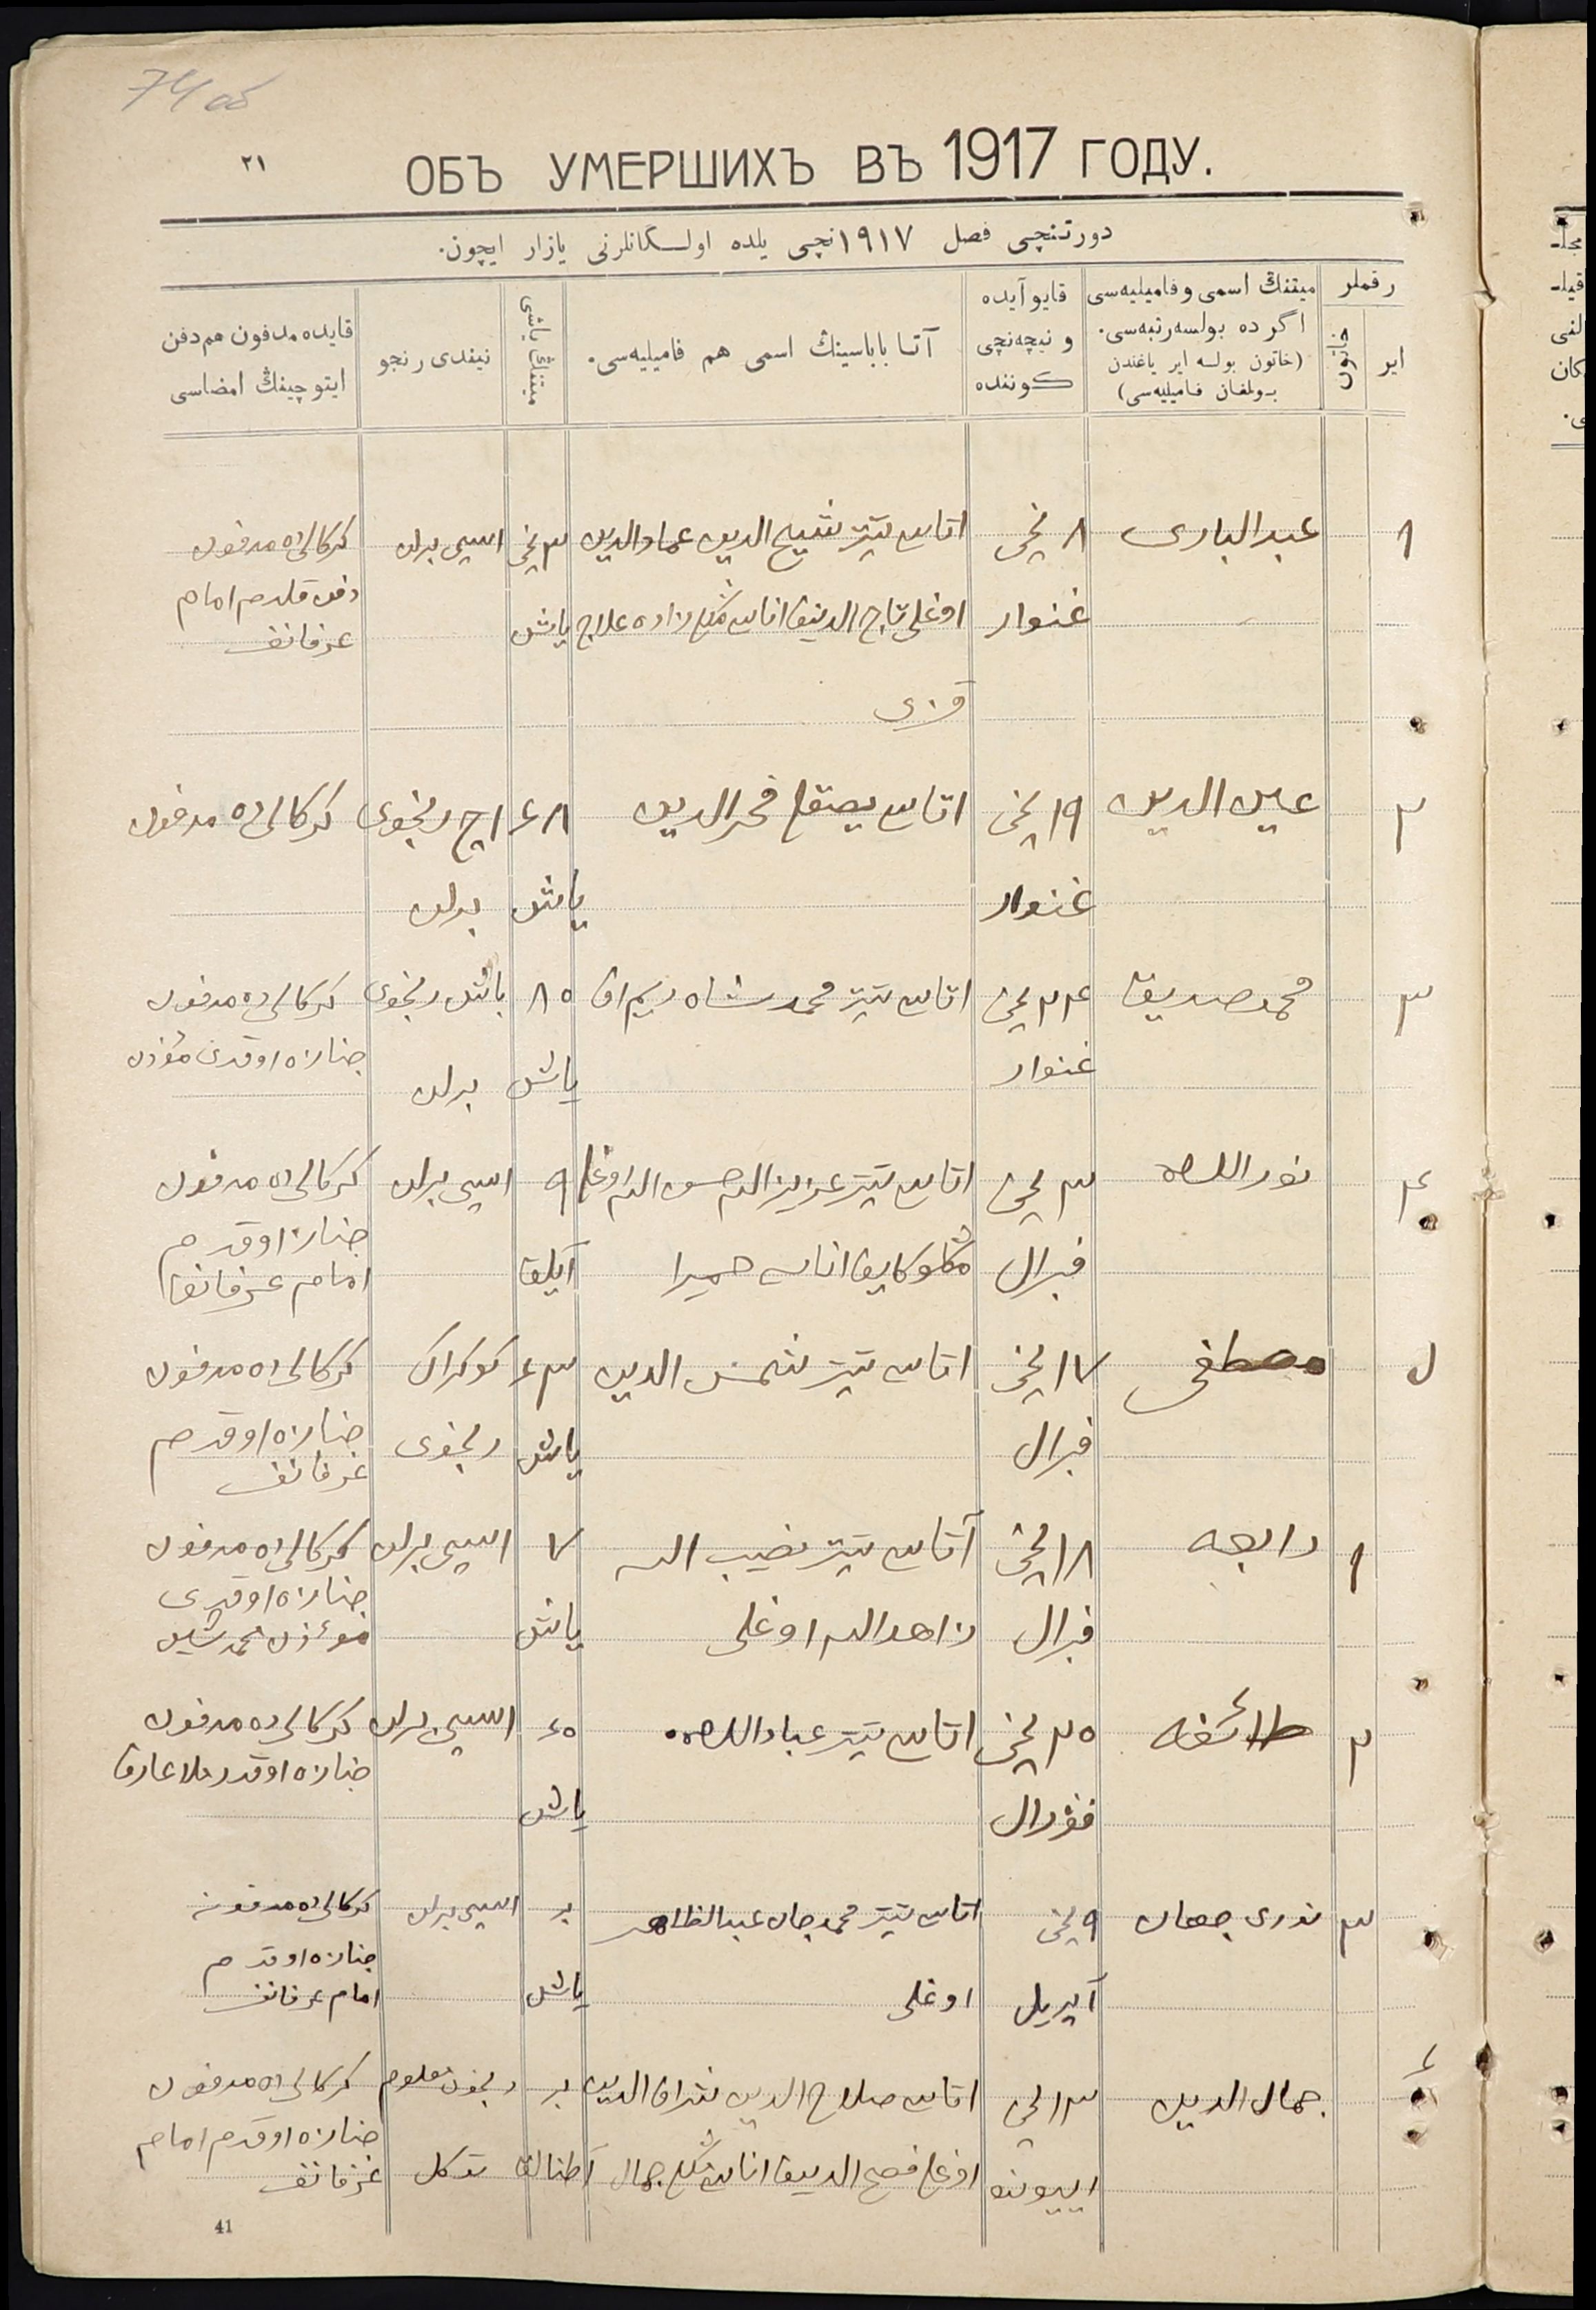 74 об
٢١
ОБЪ УМЕРШИХЪ ВЪ 1917 ГОДУ.
دورتنچی فصل ١٩١٧ نچی یلده اولـگانلرنی یازار ایچون.
رقملر
ایر
خاتون
میتنڭ اسمی و فامیلیه‌سی
اگر ده بولسه رتبه‌سی.
(خاتون بولسه ایر یاغندن
بولغان فامیلیه‌سی)
قایو آیده
و نیچه‌نچی
کوننده
آتا باباسینڭ اسمی هم فامیلیه‌سی.
میتنڭ یاشی
نیندی رنجو
قایده مدفون هم دفن
ایتوچینڭ امضاسی
١
عبد الباری
٨ نچی
غنوار
اتاسی تیتر شیخ الدین عماد الدین
اوغلی تاج الدینف اناسی
قزی
٣ نچی
یاش
اسپی برلن
کرکالی ده مدفون
دفن قلدم امام
عرفانف
٢
عین الدین
١٩ نچی
غنوار
اتاسی فخر الدین
٤٨
یاش
اچ رنجوی
برلن
کرکالی ده مدفون
٣
محمد صدیق
٢٤ نچی
غنوار
اتاسی تیتر محمد شاه
٨٥
یاش
باش رنجوی
برلن
کرکالی ده مدفون
جنازه اوقدی مؤذن
٤
نور الله
٣ نچی
فبرال
اتاسی تیتر عزیز الله حسن الله اوغلی
اناسی حمیرا
٩
آیلق
اسپی برلن
کرکالی ده مدفون
جنازه اوقدم
امام عرفانف
٥
مصطفی
١٧ نچی
فبرال
اتاسی تیتر شمس الدین
٤٣
یاش
کوکراک
رنجوی
کرکالی ده مدفون
جنازه اوقدم
عرفانف
١
رابعه
١٨ نچی
فبرال
آتاسی تیتر نصیب الله
زاهد الله اوغلی
٧
یاش
اسپی برلن
کرکالی ده مدفون
جنازه اوقدی
موءذن محمد شین
٢
طائفه
٢٥ نچی
فؤرال
اتاسی تیتر عباد الله
٤٥
یاش
اسپی برلن
کرکالی ده مدفون
جنازه اوقدی ملا عارف
٣
نوری جهان
٩ نچی
آپریل
اتاسی تیتر محمد جان عبد الظاهر
اوغلی
بر
یاش
اسپی برلن
کرکالی ده مدفونه
جنازه اوقدم
امام عرفانف
٤
جمال الدین
١٣ نچی
اییونه
اتاسی صلاح الدین شراف الدین
اوغلی فصیح الدینف اناسی جمال
بر
آطنالق
رنجوی معلوم
توکل
کرکالی ده مدفون
جنازه اوقدم امام
عرفانف
41